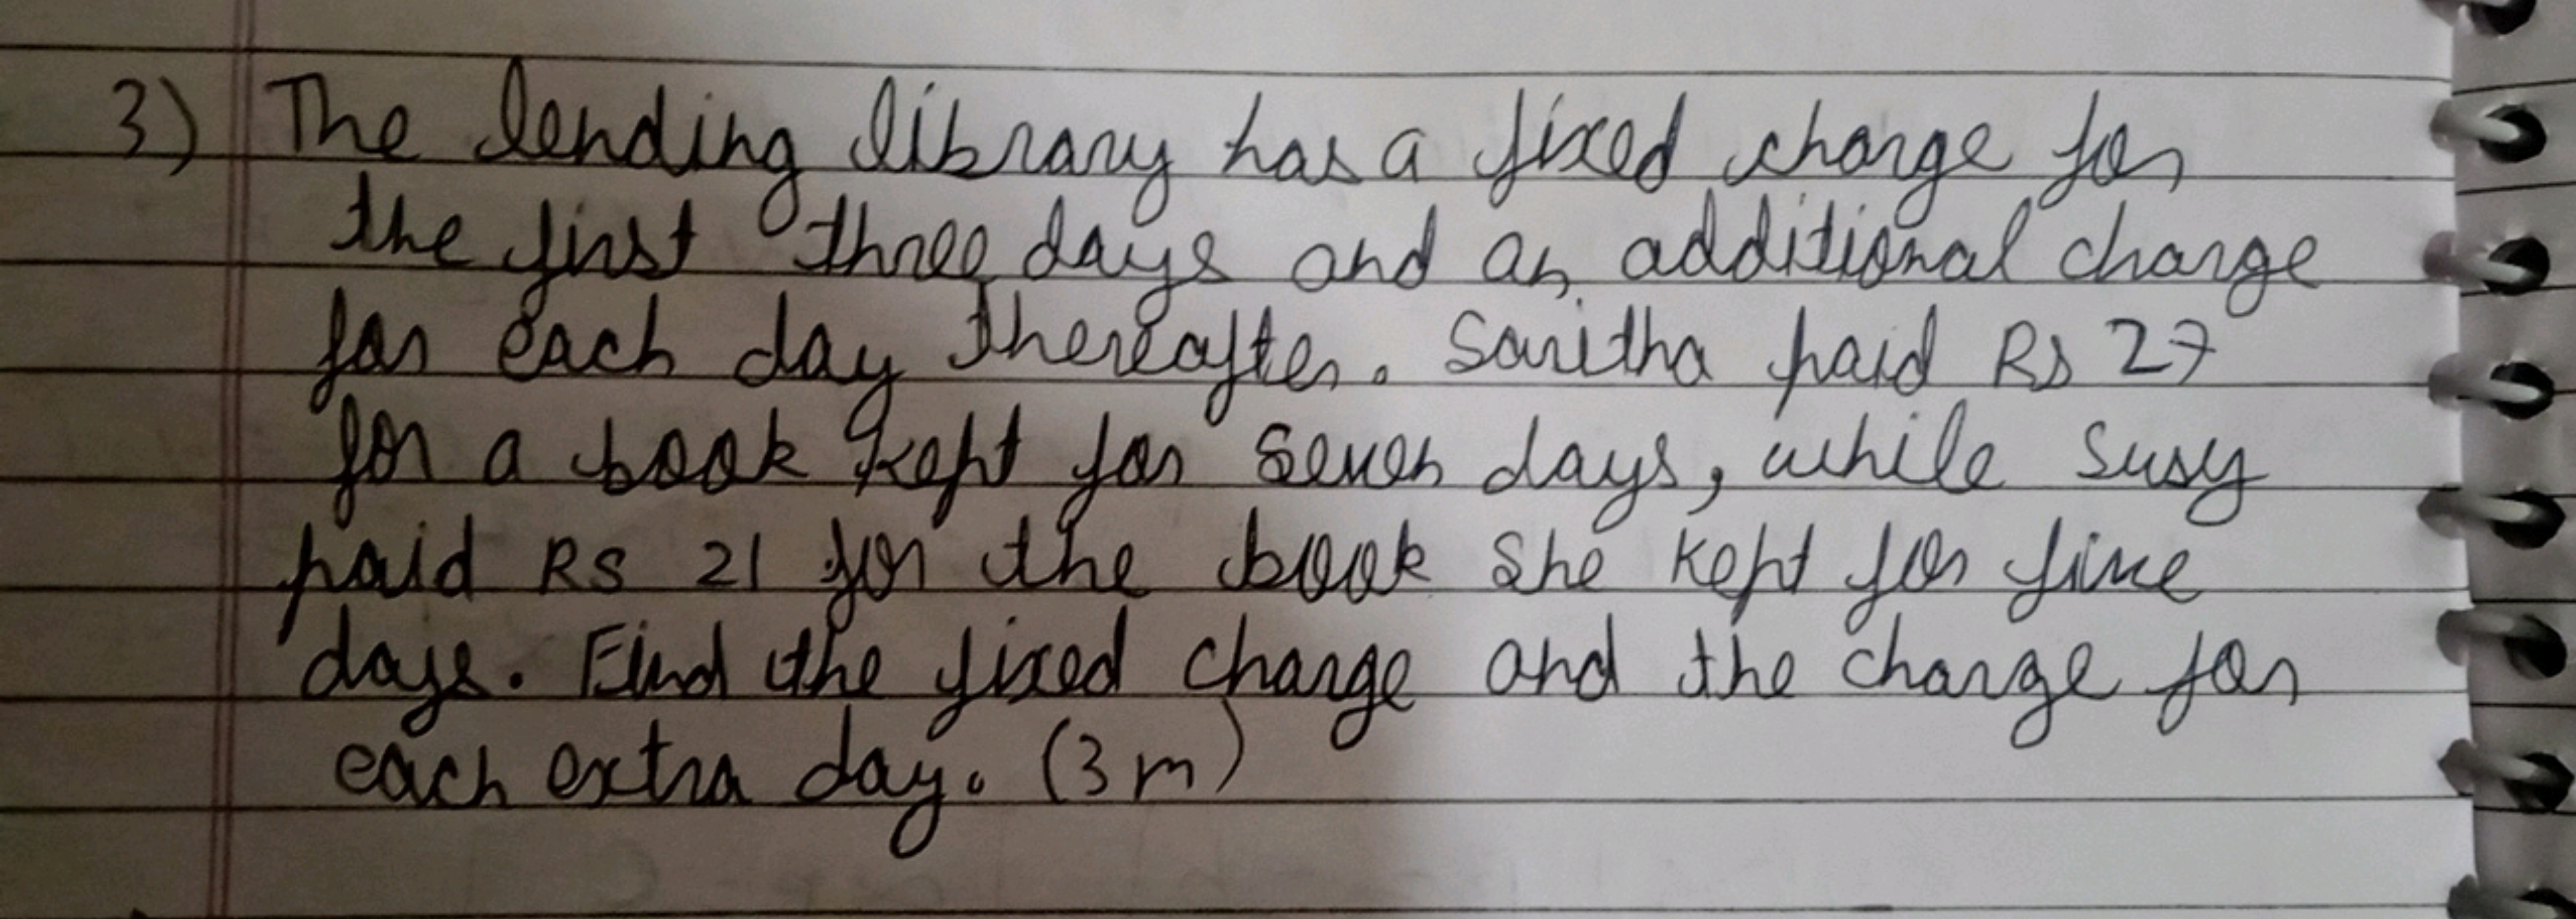 3) The lending library has a fixed charge for
the first three days and an additional charge
for each day thereafter. Saritha paid Rs 27
for a book kept for seven days, while Susy
paid RS 21 for the book she kept for five
days. Find the fixed charge and the charge for
each extra day. (3m)